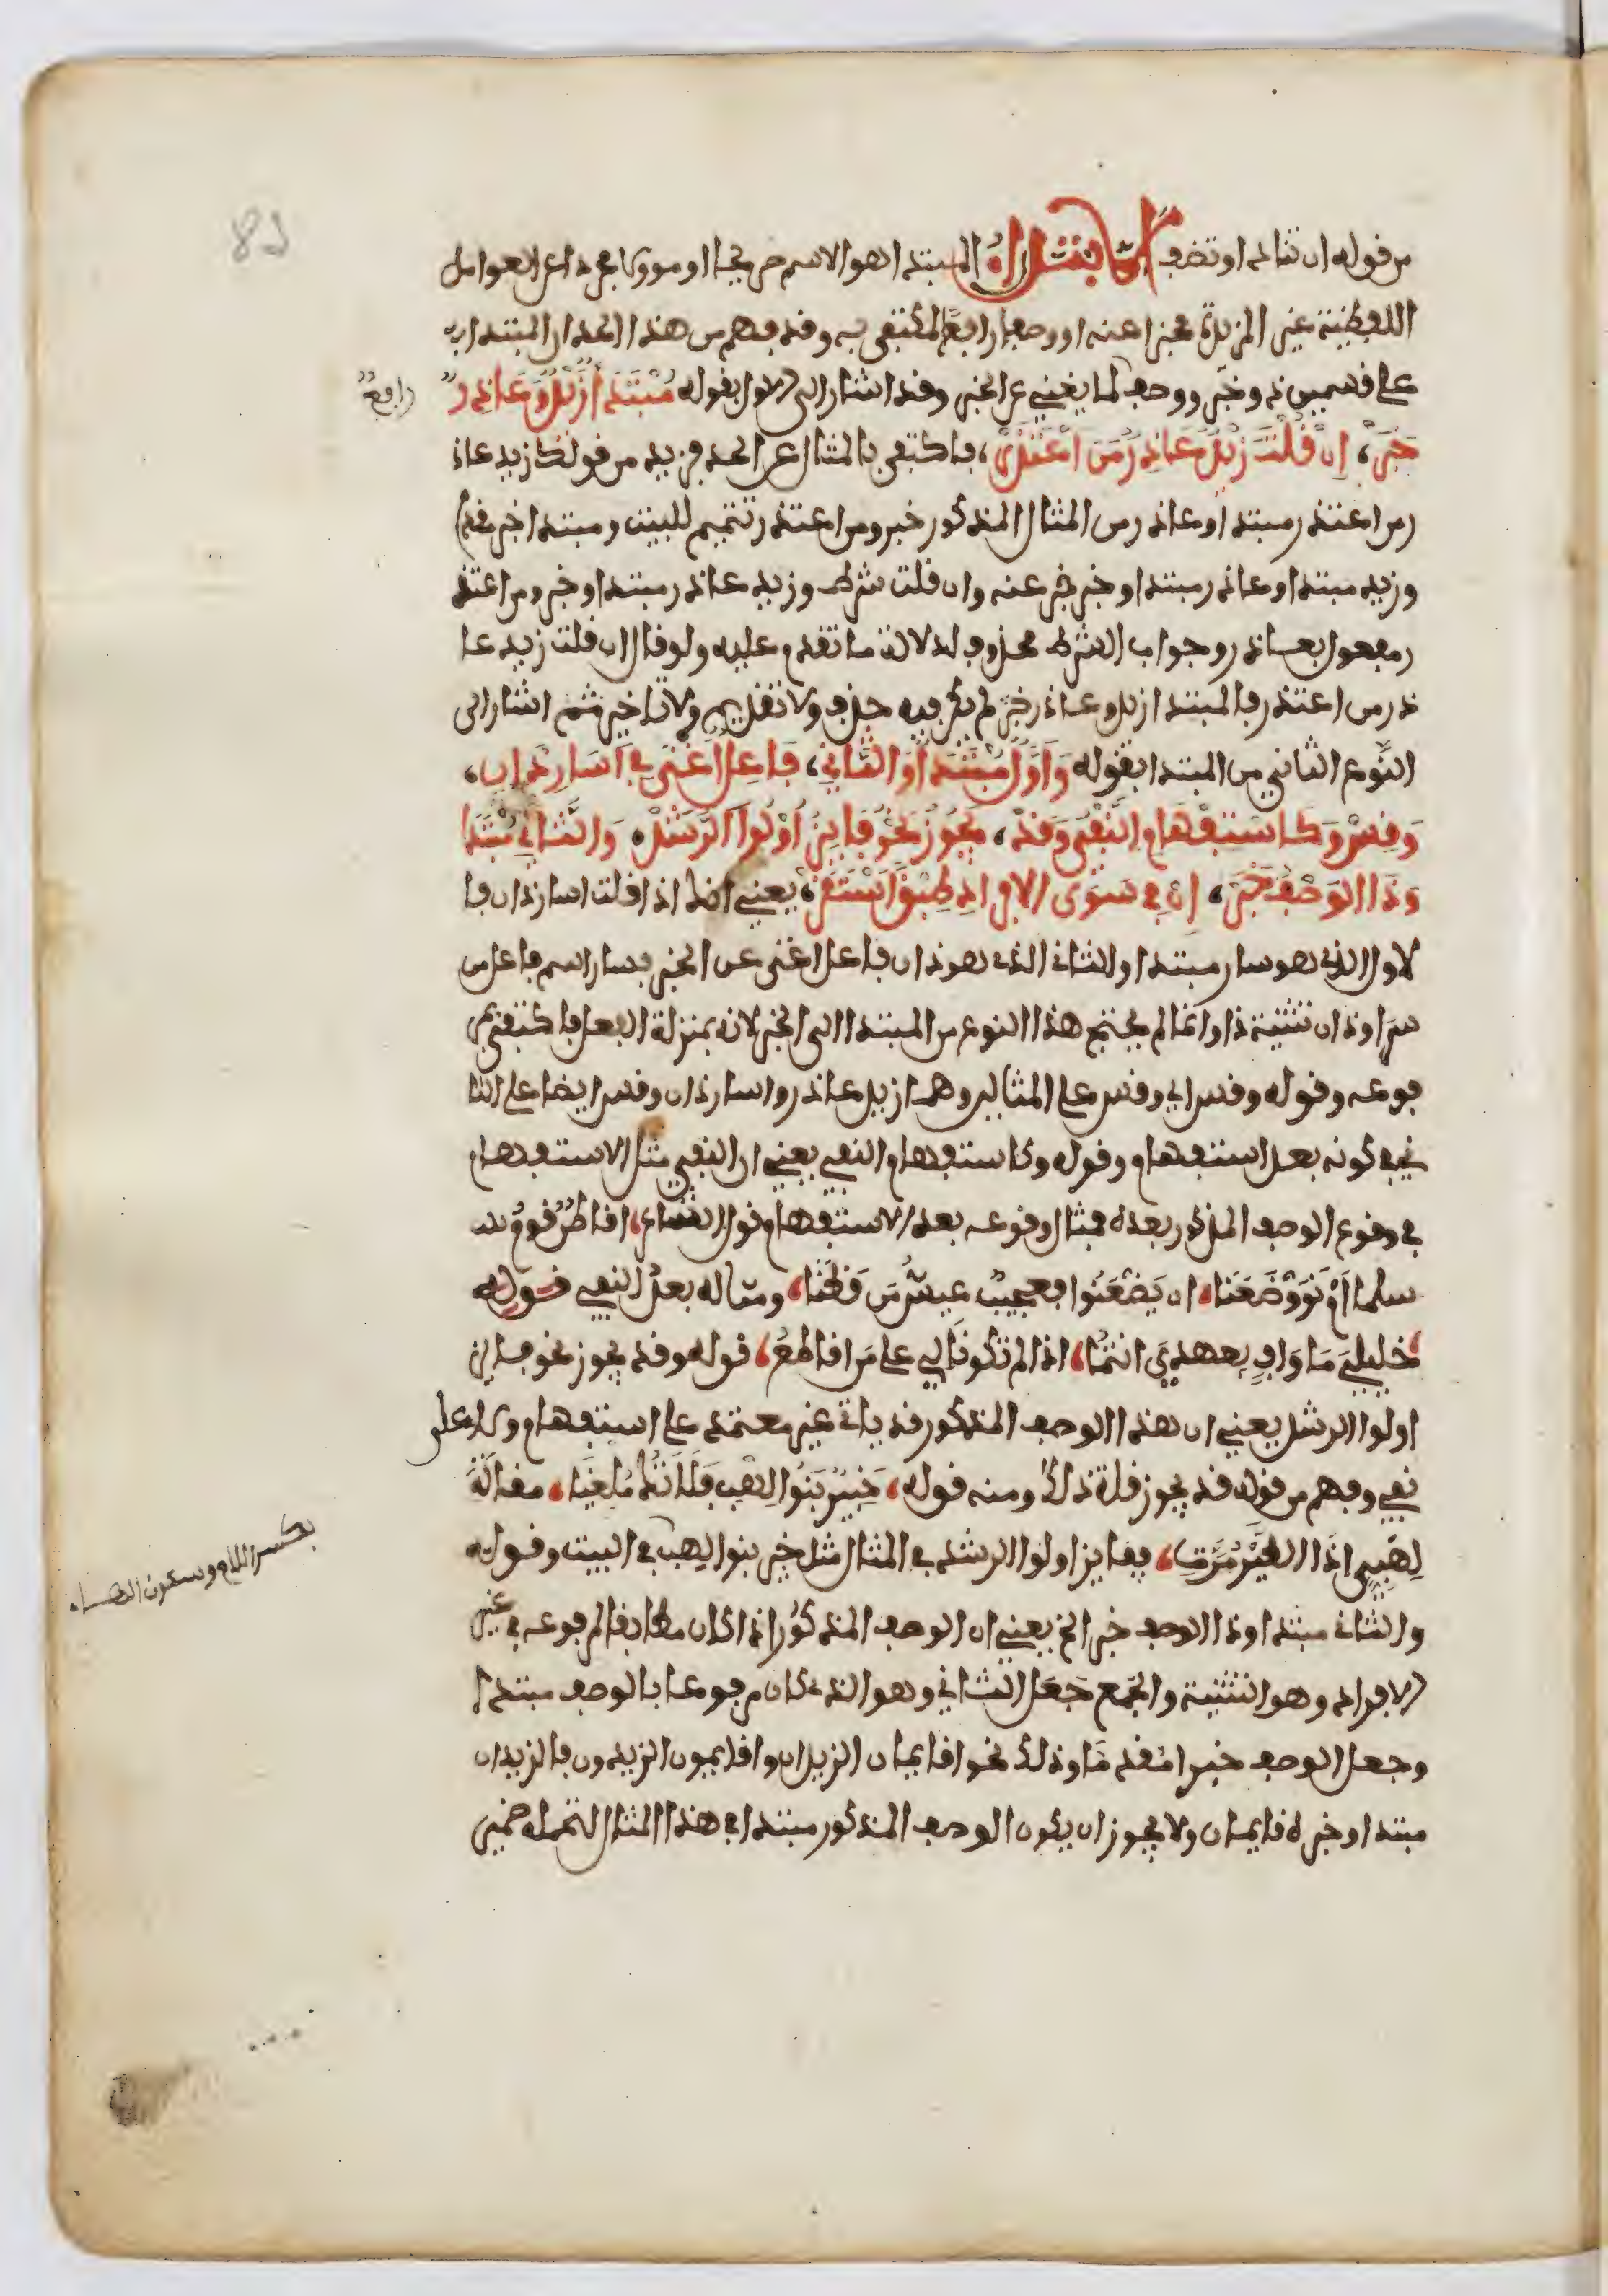 من قوله ان تناد او تضف الابتداء المبتدا هو الاسم صريحا او موولا مجردا عن العوامل
اللفظية غير المزيدة مخبرا عنه او وصفا رافعا لمكتفى به وقد فهم من هذا الحد ان المبتدا
على قسمين ذو خبر ووصف لما يغني عن الخبر وقد اشار الى الاول بقوله مُبْتَدَأ زَيْدٌ وَعَاذِرٌ
خَبَرْ، إِن قُلْتَ زَيْدٌ عَاذِرٌ مَنَ اعْتَذَرْ، فاكتفى بالمثال عن الحد فزيد من قولك زيد عاذ
ر من اعتذر مبتدا وعاذر من المثال المذكور خبر ومن اعتذر تتميم للبيت ومبتدا خبر مقدم
وزيد مبتدا وعاذر مبتدا وخبر خبر عنه وان قلت شرط وزيد عاذر مبتدا وخبر ومن اعتذ
ر مفعول بعاذر وجواب الشرط محذوف لدلالة ما تقدم عليه ولو قال ان قلت زيد عا
ذر من اعتذر فالمبتدا زيد وعاذر خبر لم يكن فيه حذف ولا تقديم ولا تاخير ثم اشار الى
النوع الثاني من المبتدا بقوله وَأَوَّلٌ مُبْتَدَأٌ وَالثَّانِي، فَاعِلٌ اغْنَى فِي أَسَارٍ ذَانِ،
وَقِسْ وَكَاسْتِفْهَامٍ النَّفْيُ وَقَدْ، يَجُوزُ نَحْوُ فَايِزٌ أُوْلُوا الرَّشَدْ، وَالثَّانِي مُبْتَدَا
وَذَا الْوَصْفُ خَبَرْ، إِن فِي سِوَى الافْرَادِ طِبْقاً اسْتَقَرْ، يعني انك اذا قلت اسار ذان فا
لاول الذي هو سار مبتدا والثاني الذي هو ذان فاعل اغنى عن الخبر فسار اسم فاعل من
سرا وذان تثنية ذا وانما لم يحتج هذا النوع من المبتدا الى الخبر لانه بمنزلة الفعل فاكتفى بمر
فوعه وقوله وقس اي وقس على المثالين وهما زيد عاذر واسار ذان وقس ايضا على الثا
ني في كونه بعد استفهام وقوله وكاستفهام النفي يعني ان النفي مثل الاستفهام
في وقوع الوصف المذكور بعده فمثال وقوعه بعد الاستفهام قول الشاعر، اقاطن قوم
سلما أَمْ نَوَوْا ظَعَنَا، ان يَظْعَنُوا فعجيب عيش مَن قَطَنَا، ومثاله بعد النفي قوله
خليليَّ مَا وَافٍ بِعهديَ انتما، اذا لم تكونا لي على مَن اقاطعُ، قوله وقد يجوز نحو فايز
اولوا الرشد يعني ان هذا الوصف المذكور قد ياتي غير معتمد على استفهام ولا على
نفي وفهم من قوله قد يجوز قلة ذلك ومنه قوله، خَبِيرٌ بَنُوا لِهْبٍ فَلَا تَكُ مُلْغِيَا، مقالَةَ
لِهْبِيٍّ إِذَا الطَّيْرُ مَرَّتِ، ففايز اولوا الرشد في المثال مثل خبير بنوا لهب في البيت وقوله
والثاني مبتدا وذا الوصف خبر الخ يعني ان الوصف المذكور اذا كان مطابقا لمرفوعه في غير
الافراد وهو التثنية والجمع جَعَل الثاني وهو الذي كان مرفوعا بالوصف مبتدا
وجعل الوصف خبرا مقدما وذلك نحو اقايمان الزيدان واقايمون الزيدون فالزيدان
مبتدا وخبره قايمان ولا يجوز ان يكون الوصف المذكور مبتدا في هذا المثال لتحمله ضمير
رافعٌ
بكسر اللام وسكون الهاء